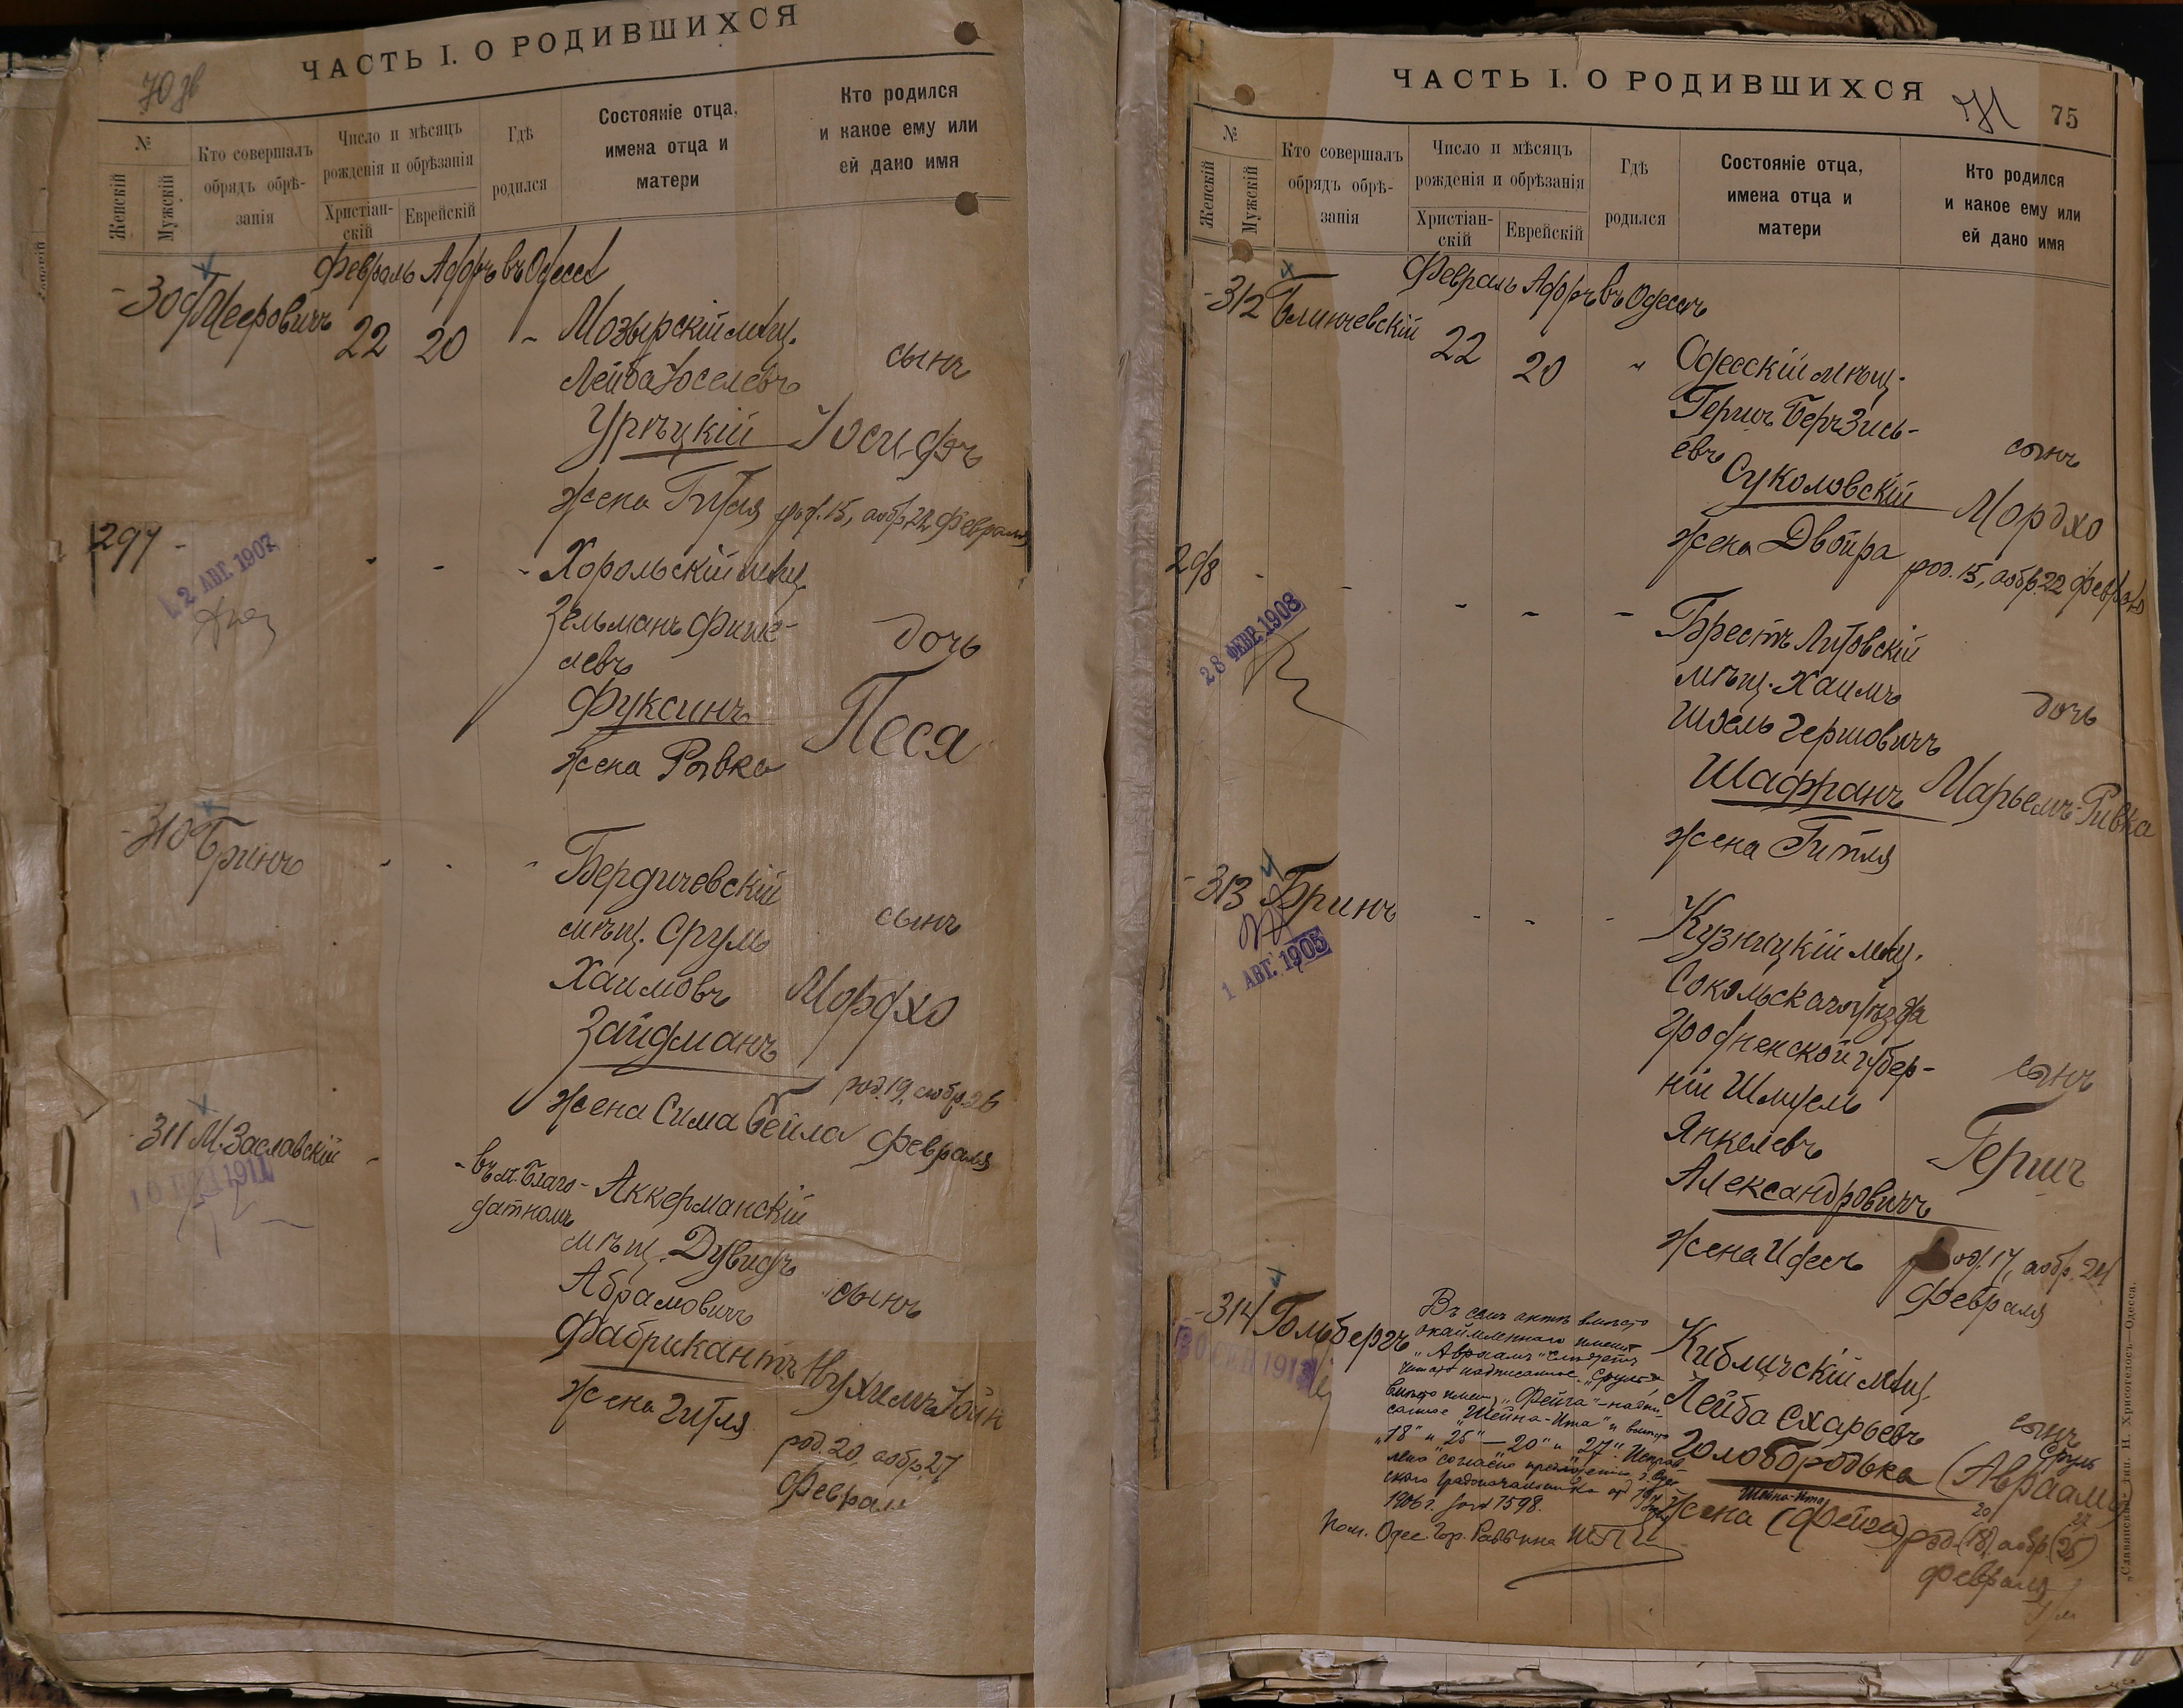 70 зв
ЧАСТЬ I. О РОДИВШИХСЯ
№
Женскій
Мужскій
Кто совершалъ
обрядъ обрѣ-
занія
Число и мѣсяцъ
рожденія и обрѣзанія
Христіан-
скій
Еврейскій
Гдѣ
родился
Состояніе отца,
имена отца и
матери
Кто родился
и какое ему или
ей дано имя
Февраль Адаръ въ Одессѣ
309 Мееровичъ 22 20 - Мозырскій мѣщ.
Лейба Іоселевъ
сынъ
Урѣцкій Іосифъ
жена Гитля род. 15, аобр. 22 февраля
297 - - - - Хорольскій мѣщ.
2 АВГ. 1907
Зельманъ Фише-
левъ
дочь
Фуксинъ
Песя
жена Рывка
310 Бринъ - - - Бердичевскій
мѣщ. Срулъ
сынъ
Хаимовъ Мордхо
Зайдманъ
род. 19, аобр. 26
жена Сима Бейла февраля
311 М. Заславскій - - въ м. Благо-
датномъ
Аккерманскій
мѣщ. Дувидъ
Абрамовичъ сынъ
Фабрикантъ Нухимъ Іойн
жена Гитля
род. 20, аобр. 27
февраля
ЧАСТЬ I. О РОДИВШИХСЯ
71 75
№
Женскій
Мужскій
Кто совершалъ
обрядъ обрѣ-
занія
Число и мѣсяцъ
рожденія и обрѣзанія
Христіан-
скій
Еврейскій
Гдѣ
родился
Состояніе отца,
имена отца и
матери
Кто родился
и какое ему или
ей дано имя
Февраль Адаръ въ Одессѣ
312 Блинчевскій 22 20 " Одесскій мѣщ.
Гершъ Беръ Зись-
евъ
сынъ
Суколовскій Мордхо
жена Двойра род. 15, аобр. 22 февраля
298 - - - - - Брестъ Литовскій
28 ФЕВР. 1908
мѣщ. Хаимъ
Шоель Гершовичъ
дочь
Шафранъ Марьемъ-Ривка
жена Гитля
313 Бринъ - - - Кузницкій мѣщ.
1 АВГ. 1905
Сокольскаго уѣзда
Гродненской губер-
ніи Шмуель
сынъ
Янкелевъ
Гершъ
Александровичъ
жена Идесъ род. 17, аобр. 24
февраля
314 Гольбергъ Кибличскій мѣщ.
Лейба Схарьевъ
сынъ
Голобородька Сруль
(Авраамъ)
Шейна-Ита
жена (Фейга) 20 27
род. (18), аобр. (25)
февраля
Въ семъ актѣ вмѣсто
окаймленнаго имени
"Авраамъ" слѣдуетъ
читать надписанное "Сруль",
вмѣсто имени "Фейга" - надпи-
санное "Шейна-Ита" и вмѣсто
"18" и "25" — "20" и "27". Исправ-
лено согласно предложенію г. Одес-
скаго Градоначальника
1906 г. за № 7598.
Пом. Одес. Гор. Раввина
„Славянская" тип. Н. Хрисогелосъ.—Одесса.